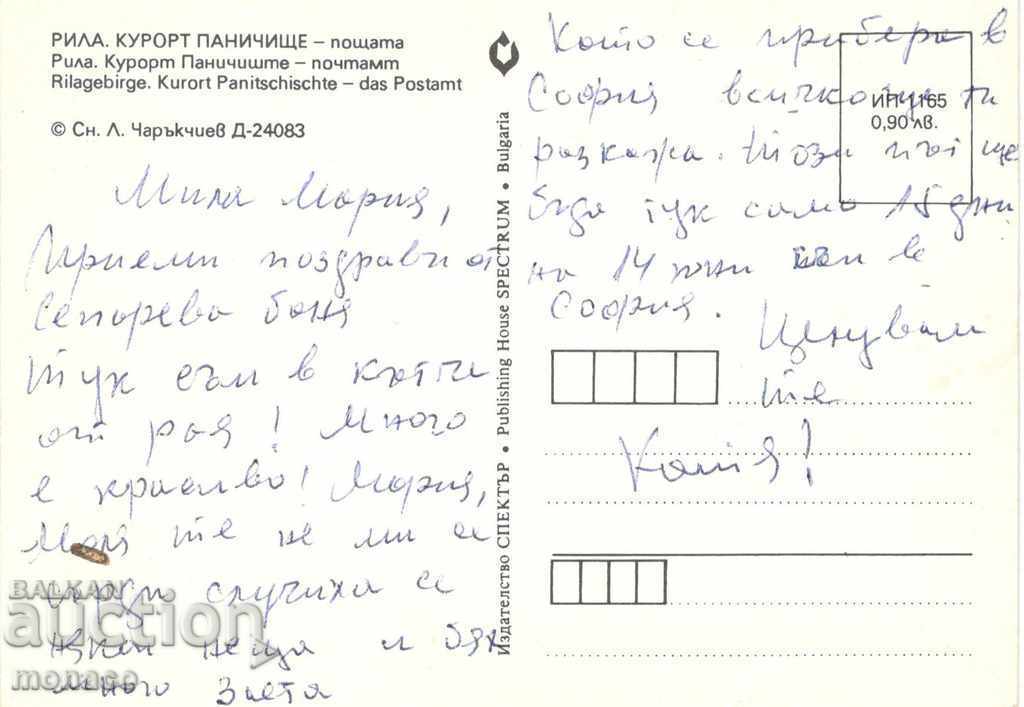 РИЛА. КУРОРТ ПАНИЧИЩЕ – пощата
Рила. Курорт Паничиште – почтамт
Rilagebirge. Kurort Panitschischte – das Postamt
© Сн. Л. Чаръкчиев Д-24083
Мила Мария,
Приеми поздрави от
Сепарева баня
Тук съм в кътче
от рая! Много
е красиво! Мария,
моля те не ми се
сърди случиха се
някои неща и бях
много заета
Издателство СПЕКТЪР • Publishing House SPECTRUM • Bulgaria
ИП-1165
0,90 лв.
Като се прибера в
София всичко ще ти
разкажа. Този път ще
бъда тук само 15 дни
на 14 юни съм в
София.
Целувам
те
Катя!
BALKAN
auction
monaso